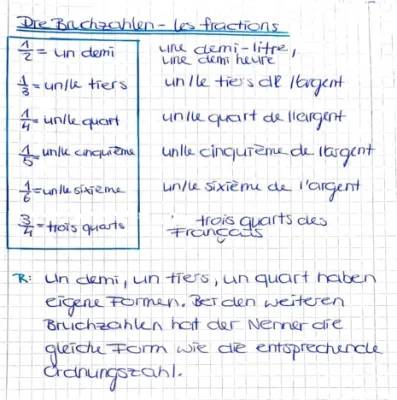 Die Bruchzahlen - les fractions
1/2 = un demi une demi-litre,
une demi heure
1/3 = un/le tiers un/le tiers de l'argent
1/4 = un/le quart un/le quart de l'argent
1/5 = un/le cinquième un/le cinquième de l'argent
1/6 = un/le sixième un/le sixième de l'argent
3/4 = trois quarts trois quarts des
Français
R: Un demi, un tiers, un quart haben
eigene Formen. Bei den weiteren
Bruchzahlen hat der Nenner die
gleiche Form wie die entsprechende
Ordnungszahl.